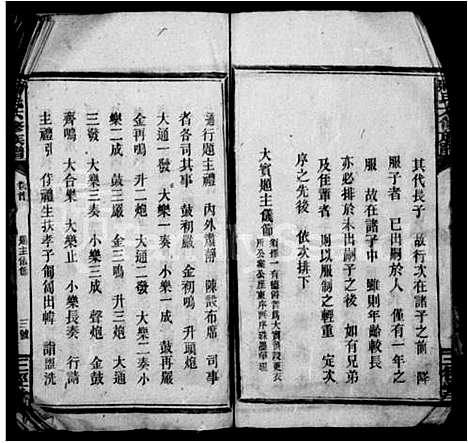 其代長子 故行次在諸子之前 降
服子者 已出嗣於人 僅有一年之
服 故在諸子中 雖則年齡較長
亦必排於未出嗣子之次 如有兄弟
及住輩者 則以服制之輕重 定次
序之先後 依次排下
大賓題主儀節
通行題主禮 內外肅靜 陳設布席 司事
者各司其事 鼓初嚴 金初鳴 升頭炮
大通一發 大樂一奏 小樂一成 鼓再嚴
金再鳴 升二炮 大通二發 大樂二奏 小
樂二成 鼓三嚴 金三鳴 三炮 大通
三發 大樂三奏 小樂三成 聲炮 金鼓
齊鳴 大合樂 大樂止 小樂長奏 行請
主禮引 伴禮生扶孝子匍匐出幃 請盥洗
卷首 題主儀節 三號